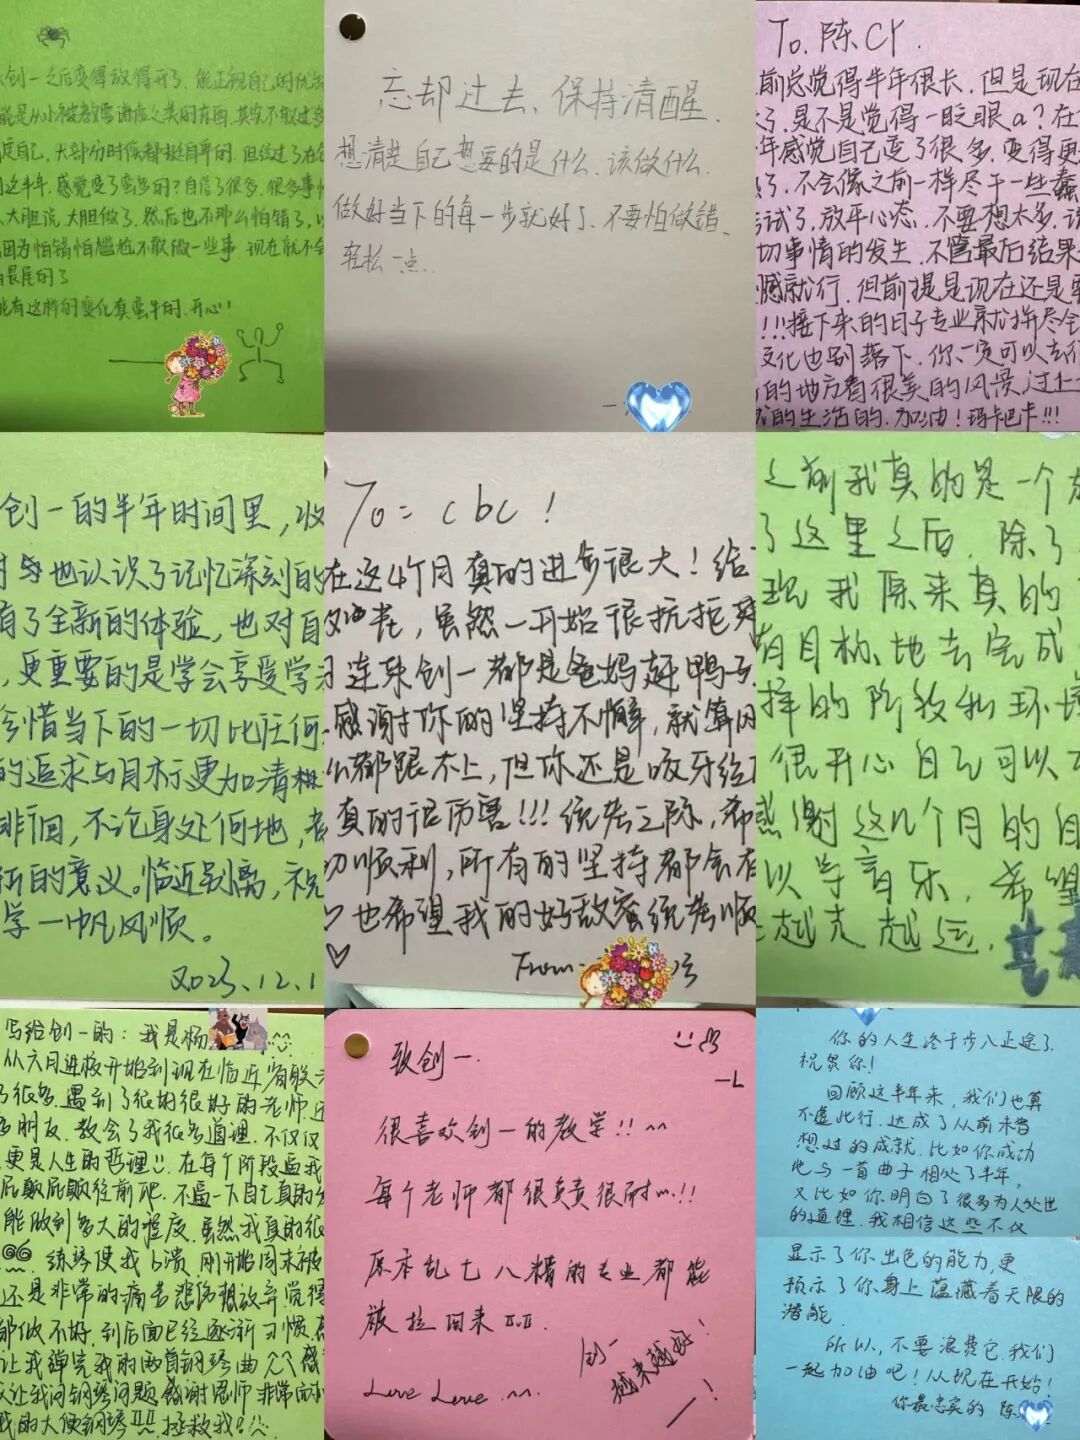 创一之后变得放得开了，能正视自己的优
能是从小被教
尾自己，大部分时候都挺自卑的，但经过了在
到这半年，感觉变了蛮多的？自信了很多，很多事
大胆说，大胆做了，然后也不那么怕错了，
因为怕错怕尴尬不敢做一些事，现在就不会
能有这样的变化真蛮牛的，开心！
忘却过去，保持清醒。
想清楚自己想要的是什么，该做什么
做好当下的每一步就好了，不要怕做错，
轻松一点…
To. 陈CY.
前总觉得半年很长，但是现在
了，是不是觉得一眨眼a？在
年感觉自己变了很多，变得更
了，不会像之前一样尽干一些蠢
考试了，放平心态，不要想太多，
切事情的发生，不管最后结果
感就行，但前提是现在还是要
!!!接下来的日子专业就拼尽全
文化也别落下，你一定可以去
的地方看很美的风景，过上
的生活的，加油！玛卡巴卡!!!
创一的半年时间里，收
时与也认识了记忆深刻的
有了全新的体验，也对自
，更重要的是学会享受学习
珍惜当下的一切比任何
的追求与目标更加清晰
徘徊，不论身处何地，
新的意义。临近别离，祝
学一帆风顺。
2023.12.1
To：cbc！
在这4个月真的进步很大！给
虽然一开始很抗拒
连来创一都是爸妈赶鸭子
感谢你的坚持不懈，就算因
么都跟不上，但你还是咬牙给
真的很厉害!!!统考之际，希
切顺利，所有的坚持都会有
♡也希望我的好敌蜜统考顺
♡
From
之前我真的是一个
了这里之后，除了
现我原来真的
有目标地去完成
择的阶段和环境
很开心自己可以
感谢这几个月的自
以学音乐，希望
越走越远。
写给创一的：我是杨
从六月进校开始到现在临近
了很多，遇到了很好很好的老师，还
多朋友，教会了我很多道理，不仅仅
更是人生的哲理!! 在每个阶段逼我
屁颠屁颠往前吧，不逼一下自己真的
能做到多大的程度，虽然我真的很
练琴使我崩溃，刚开始周末被
还是非常的痛苦悲伤想放弃，觉得
都做不好，到后面已经逐渐习惯
让我弹完我的两首钢琴曲
让我问钢琴问题，感谢恩师非常
我的大便钢琴!! 拯救我!
致创一.
—L
很喜欢创一的教学!! ^^
每个老师都很负责很耐心!!
原本乱七八糟的专业都能
被拉回来 II.II.
创一
越来越好！
Love Love ^^.
你的人生终于步入正途了，
祝贺你！
回顾这半年来，我们也算
不虚此行，达成了从前未曾
想过的成就，比如你成功
地与一首曲子相处了半年，
又比如你明白了很多为人处世
的道理，我相信这些不仅
显示了你出色的能力，更
预示了你身上蕴藏着无限的
潜能
所以，不要浪费它，我们
一起加油吧！从现在开始！
你最忠实的 陈